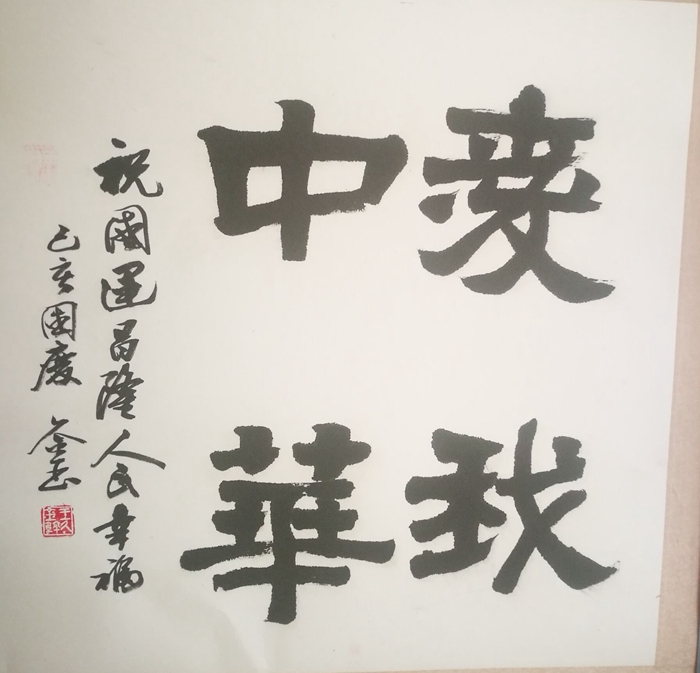 愛我
中華
祝國運昌隆人民幸福
己亥國慶 金玉